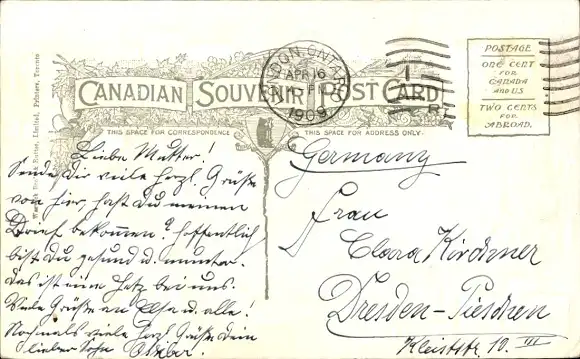 CANADIAN SOUVENIR POST CARD
THIS SPACE FOR CORRESPONDENCE
THIS SPACE FOR ADDRESS ONLY.
LONDON, ONTARIO
APR 16
PM
1909
POSTAGE
ONE CENT
FOR
CANADA
AND U.S.
TWO CENTS
FOR
ABROAD.
Limited, Printers, Toronto
Liebe Mutter!
Sende Dir viele herzl. Grüße
von hier, hast Du meinen
Brief bekommen? Hoffentlich
bist Du gesund u. munter.
Das ist eine Hetz bei uns.
Viele Grüße an Elsa u. alle!
Nochmals viele herzl. Grüße Dein
lieber Sohn
Germany
Frau
Clara Kirchner
Dresden-Pieschen
Kleiststr. 10. III